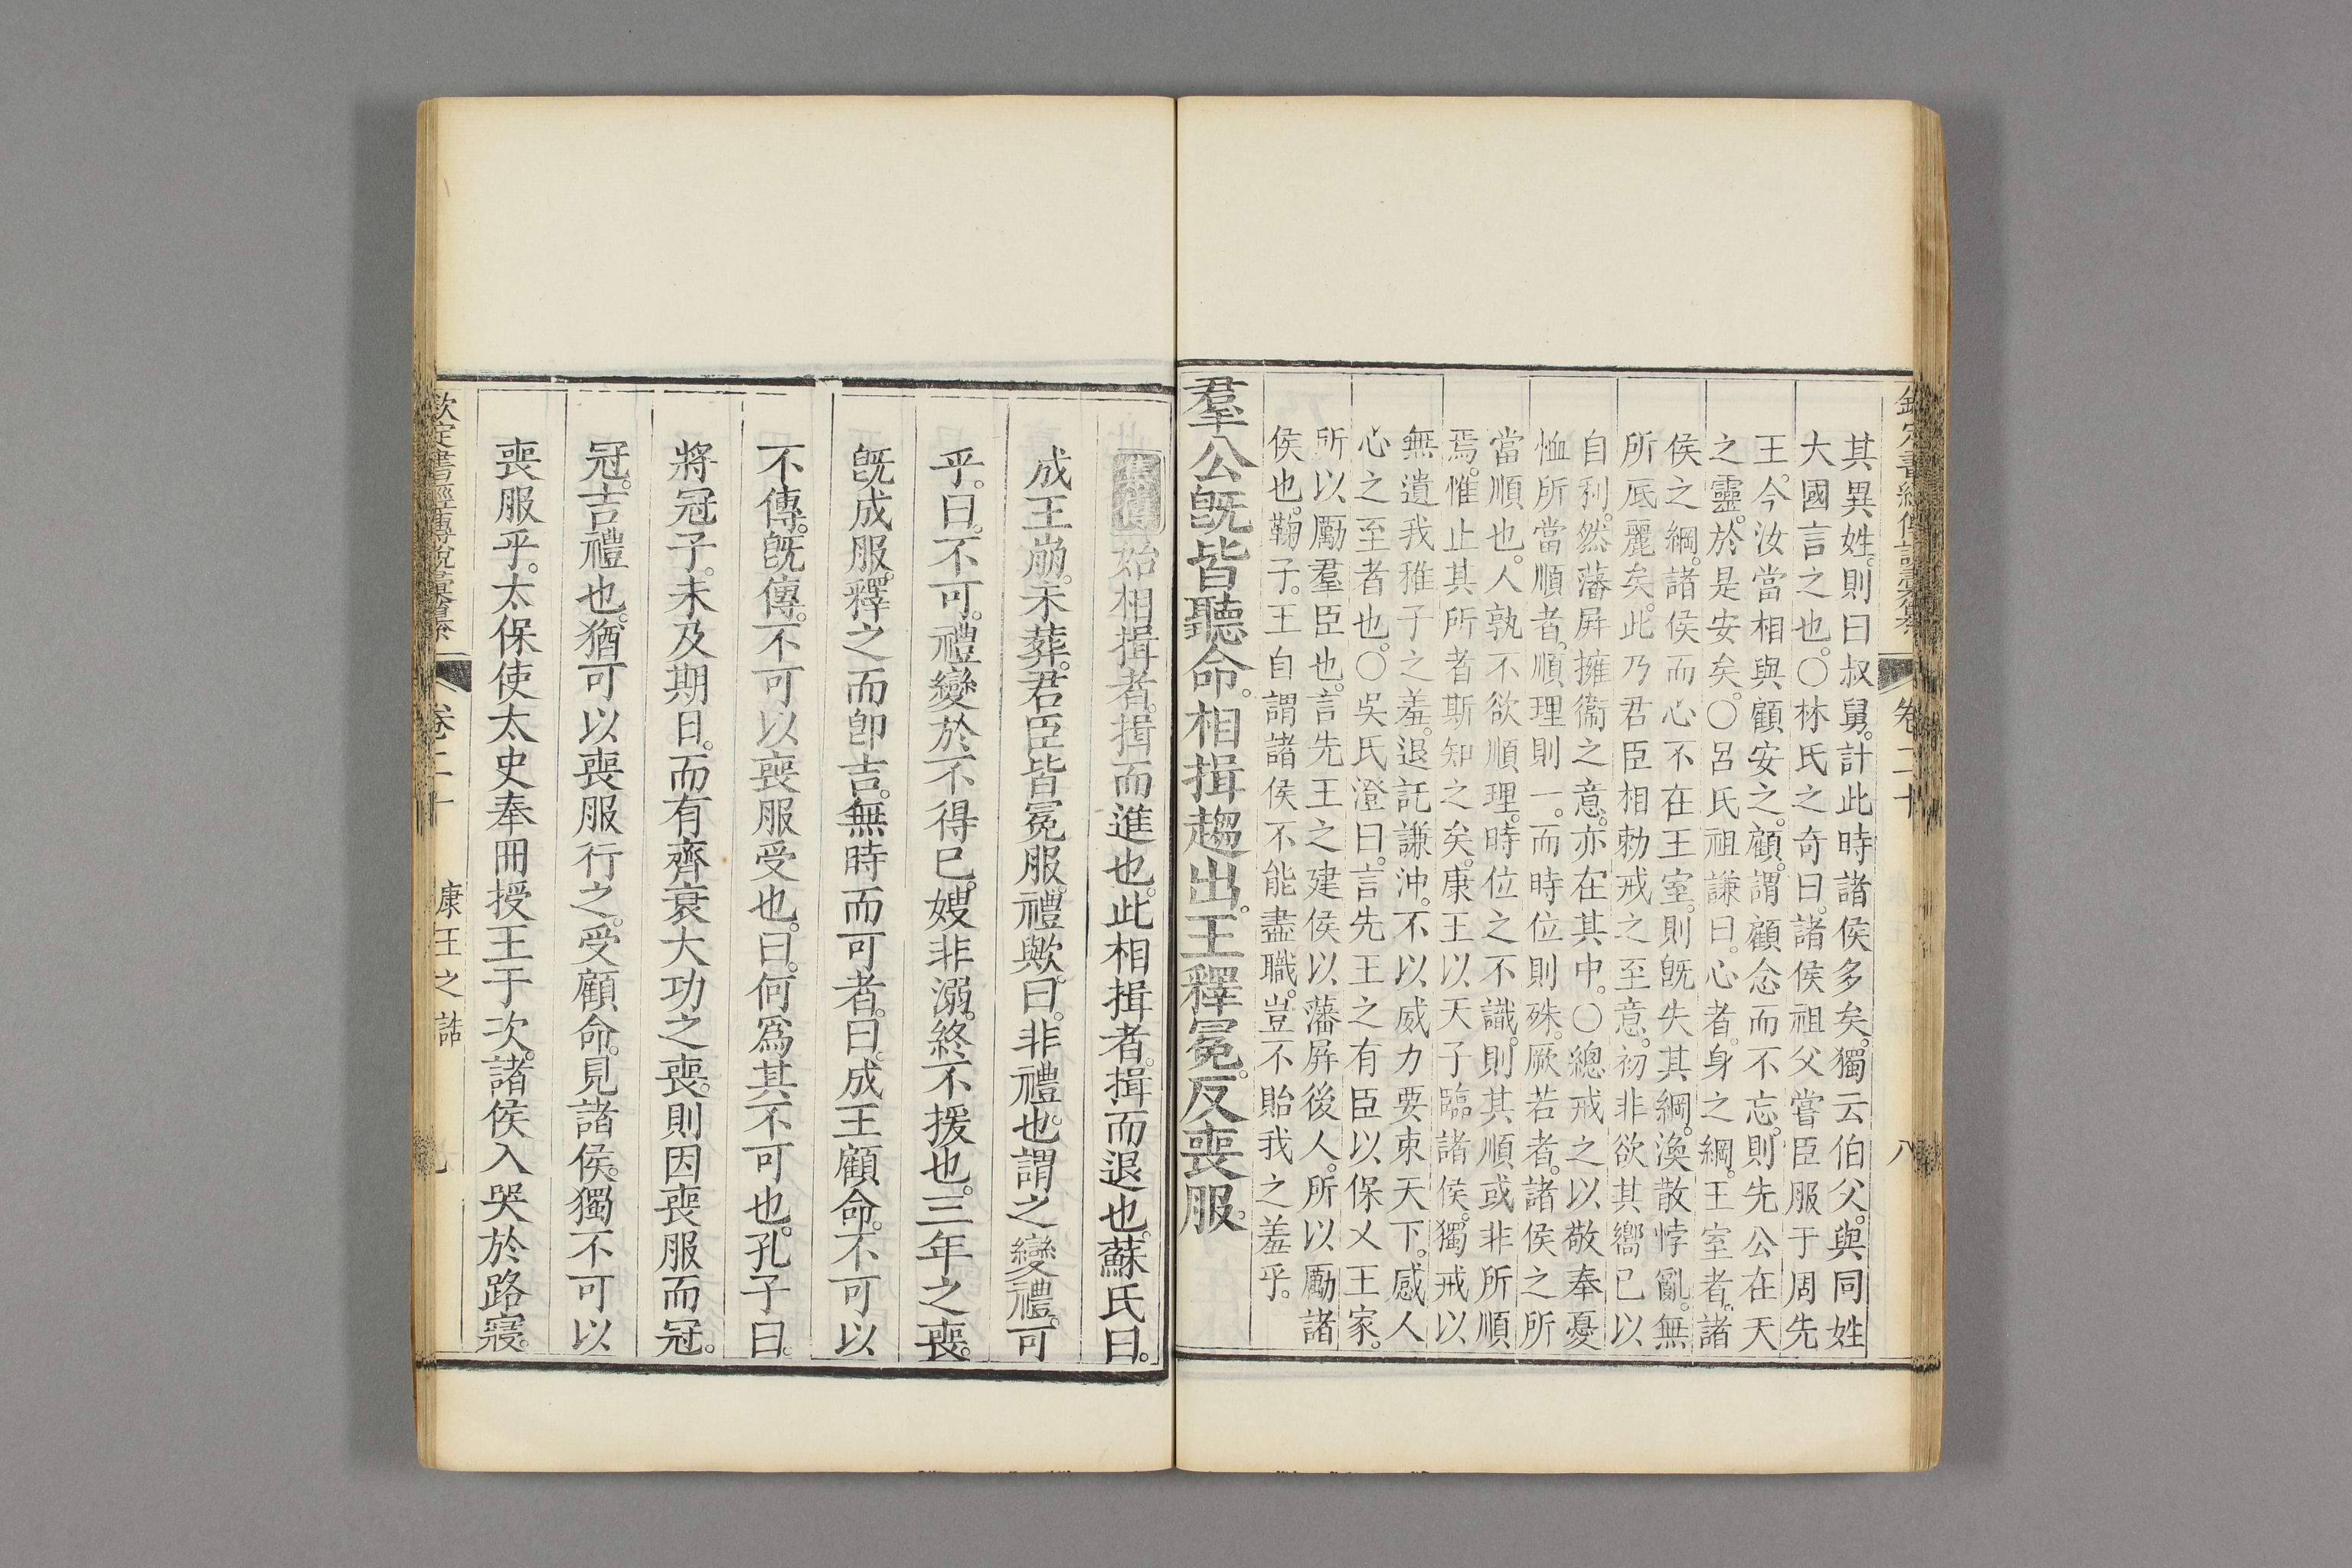 欽定書經傳說彙纂 卷二十 八
其異姓。則曰叔舅。計此時諸侯多矣。獨云伯父。與同姓
大國言之也。○林氏之奇曰。諸侯祖父嘗臣服于周先
王。今汝當相與顧安之。顧。謂顧念而不忘。則先公在天
之靈。於是安矣。○呂氏祖謙曰。心者。身之綱。王室者。諸
侯之綱。諸侯而心不在王室。則旣失其綱。渙散悖亂。無
所底麗矣。此乃君臣相勑戒之至意。初非欲其嚮己以
自利。然藩屛擁衞之意。亦在其中。○總戒之以敬奉憂
恤所當順者。順理則一。而時位則殊。厥若者。諸侯之所
當順也。人孰不欲順理。時位之不識。則其順或非所順
焉。惟止其所者斯知之矣。康王以天子臨諸侯。獨戒以
無遺我稚子之羞。退託謙沖。不以威力要束天下。感人
心之至者也。○吳氏澄曰。言先王之有臣以保乂王家。
所以勵羣臣也。言先王之建侯以藩屛後人。所以勵諸
侯也。鞠子。王自謂諸侯不能盡職。豈不貽我之羞乎。
羣公旣皆聽命。相揖趨出。王釋冕。反喪服。
集傳始相揖者。揖而進也。此相揖者。揖而退也。蘇氏曰。
成王崩。未葬。君臣皆冕服。禮歟。曰。非禮也。謂之變禮。可
乎。曰。不可。禮變於不得已。嫂非溺。終不援也。三年之喪。
旣成服。釋之而卽吉。無時而可者。曰。成王顧命。不可以
不傳。旣傳。不可以喪服受也。曰。何爲其不可也。孔子曰。
將冠子。未及期日。而有齊衰大功之喪。則因喪服而冠。
冠。吉禮也。猶可以喪服行之。受顧命。見諸侯。獨不可以
喪服乎。太保使太史奉冊授王于次。諸侯入哭於路寢。
欽定書經傳說彙纂 卷二十 康王之誥 九